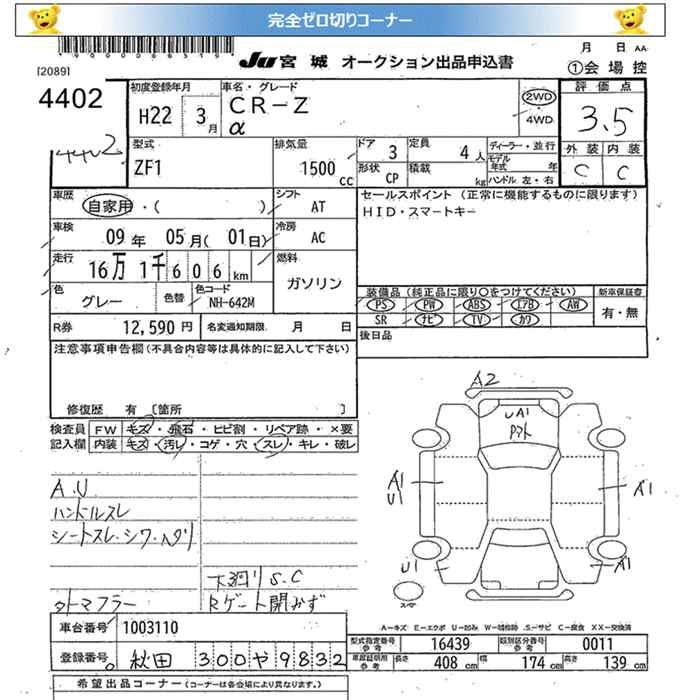 完全ゼロ切りコーナー
[2089]
JU 宮城 オークション出品申込書
月 日 AA
①会場控
4402
4402
初度登録年月
H22 3月
車名・グレード
CR-Z
α
2WD
4WD
評価点
3.5
外装 内装
C C
型式
ZF1
排気量
1500 cc
ドア 3
定員 4人
形状 CP
積載 kg
ディーラー・並行
モデル年式 年
ハンドル 左・右
車歴
自家用・( )
シフト
AT
セールスポイント (正常に機能するものに限ります)
HID・スマートキー
車検
09年 05月(01日)
冷房
AC
走行
16万1千606km
燃料
ガソリン
色
グレー
色替
色コード
NH-642M
装備品(純正品に限り○をつけてください)
新車保証書
PS PW ABS エアB AW
SR ナビ TV カワ
有・無
R券 12,590円
名変通知期限 月 日
後日品
注意事項申告欄(不具合内容等は具体的に記入して下さい)
修復歴 有 〔箇所 〕
検査員記入欄
FW キズ・飛石・ヒビ割・リペア跡・×要
内装 キズ・汚レ・コゲ・穴・スレ・キレ・破レ
A.U
ハンドルスレ
シートスレ・シワ・ヘタリ
下廻りS.C
外マフラー
Rゲート開かず
A2
UA1
A1
U1
A1
U1
A1
スペヤ
A―キズ E―エクボ U―凹み W―補修跡 S―サビ C―腐食 XX―交換済
車台番号 1003110
登録番号 秋田 300や9832
型式指定番号 参考 16439
類別区分番号 参考 0011
車庫証明用 参考 長さ 408cm 幅 174cm 高さ 139cm
希望出品コーナー(コーナーは各会場により異なります。)